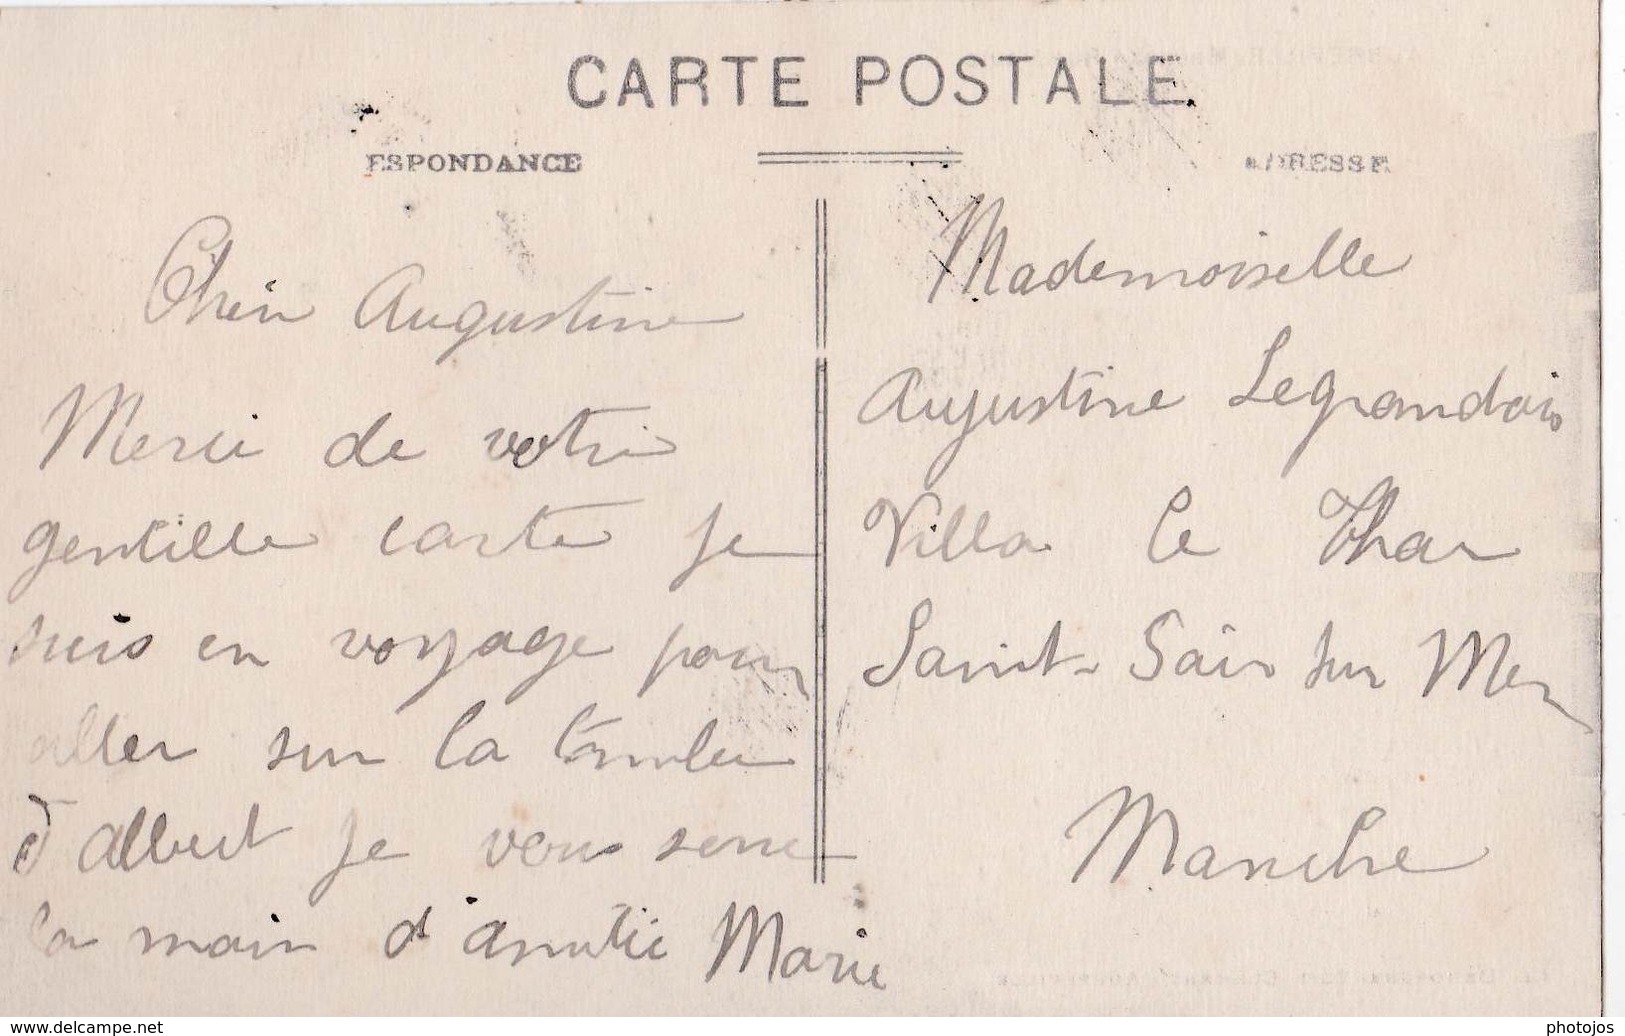 CARTE POSTALE
ESPONDANCE
ADRESSE
Chèr Augustine
Merci de votre
gentille carte je
suis en voyage pour
aller sur la tombe
d'albert je vous serre
la main d'amitié Marie
Mademoiselle
Augustine Legrandois
Villa le Thar
Saint-Pair sur Mer
Manche
delcampe.net
photojos